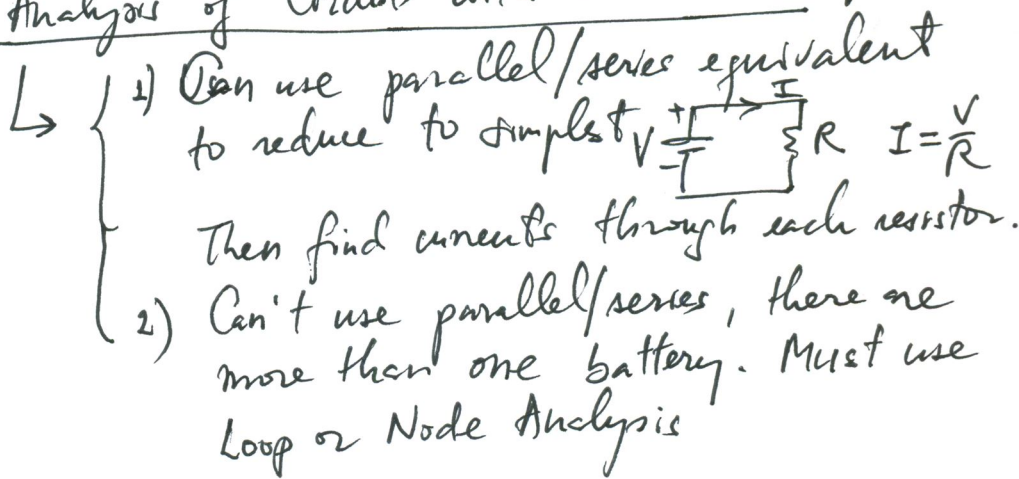 Analysis of
1) Can use parallel/series equivalent
to reduce to simplest V + - I R I = V/R
Then find currents through each resistor.
2) Can't use parallel/series, there are
more than one battery. Must use
Loop or Node Analysis